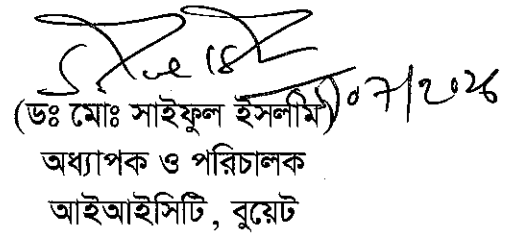 (ডঃ মোঃ সাইফুল ইসলাম)
অধ্যাপক ও পরিচালক
আইআইসিটি, বুয়েট